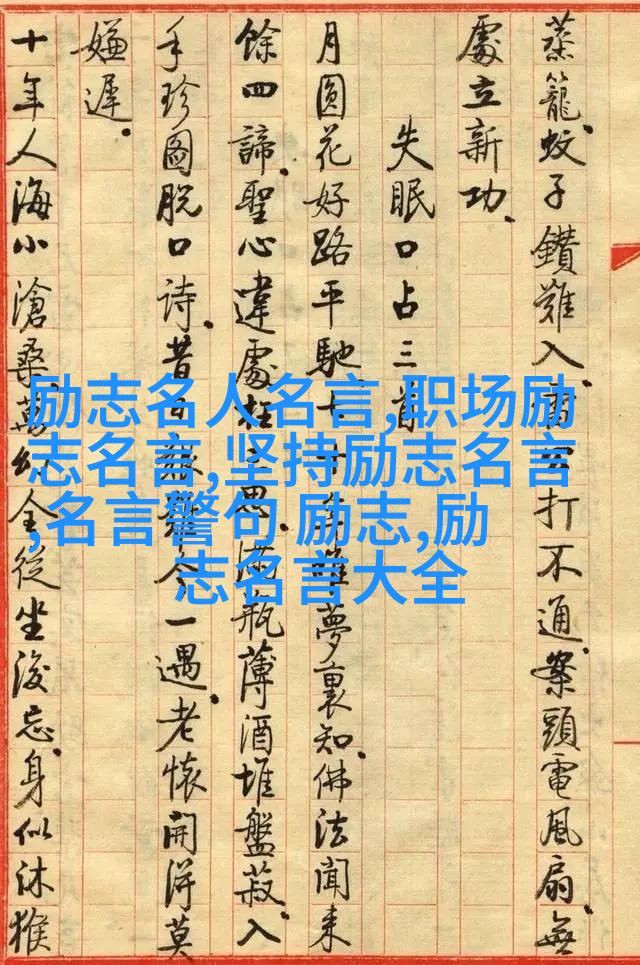 蒸籠.蚊子鑽難入.打不通.案頭電風扇.無
處立新功.
失眠口占三首
月圓花好路平馳.七十年唯夢裏知.佛法聞来
餘四諦.聖心違處枉三思.滿瓶薄酒堆盤菽.入
手珍圖脱口詩.昔日艱難今一遇.老懷開得莫
嫌遲.
十年人海小滄桑.萬幻全從坐後忘.身似沐猴
励志名人名言,职场励
志名言,坚持励志名言
,名言警句 励志,励
志名言大全